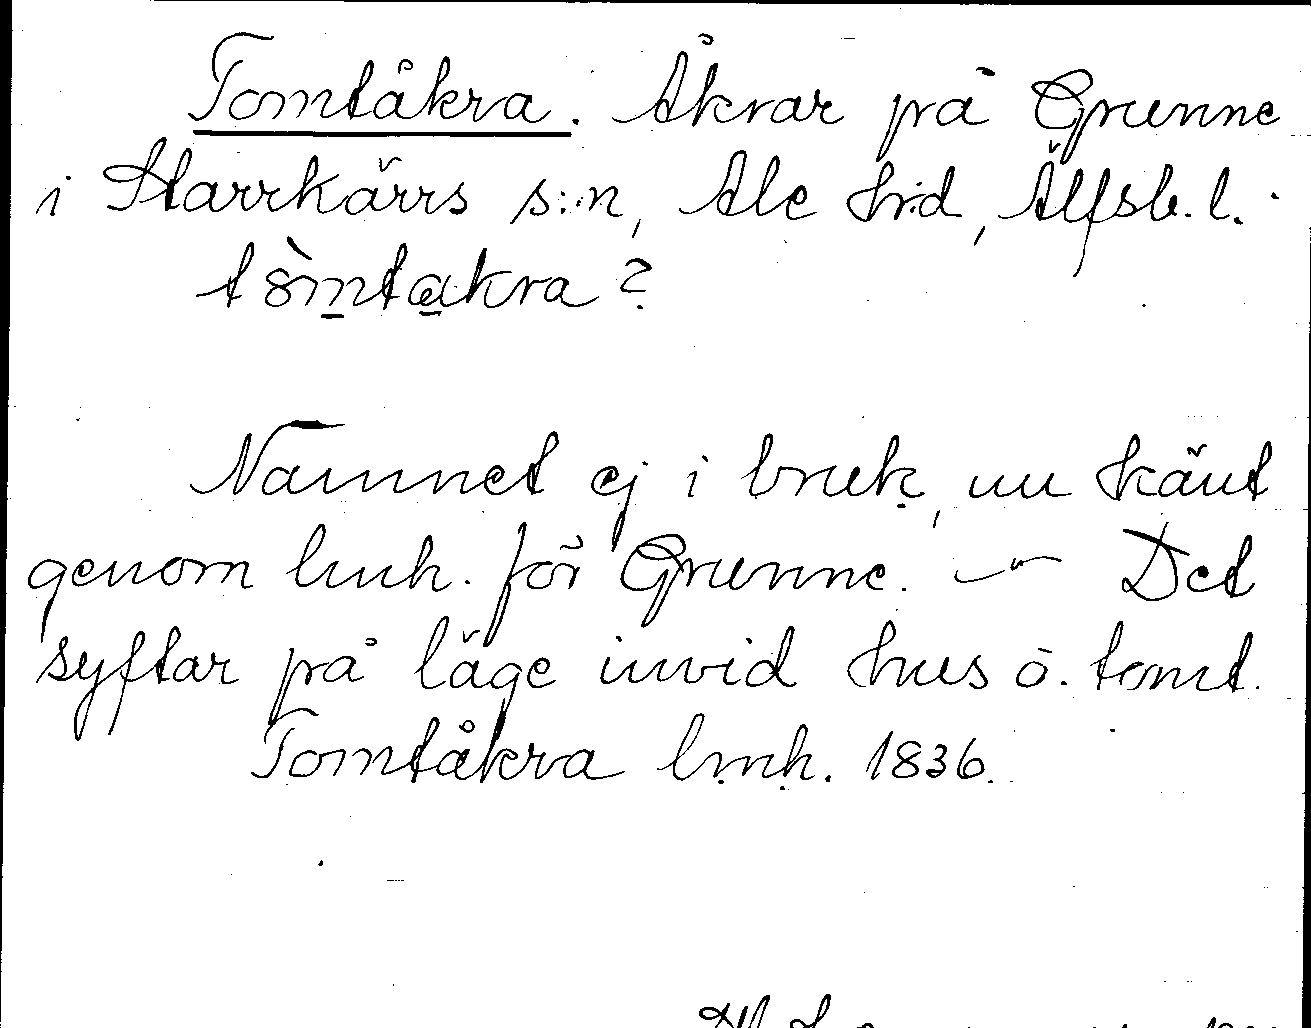 Tomtåkra. Åkrar på Grunne
i Starrkärrs s:n, Ale hrd, Älfsb. l.
tò̀mtakra?
Namnet ej i bruk, nu känt
genom lmh. för Grunne. — Det
syftar på läge invid hus o. tomt.
Tomtåkra lmh. 1836.